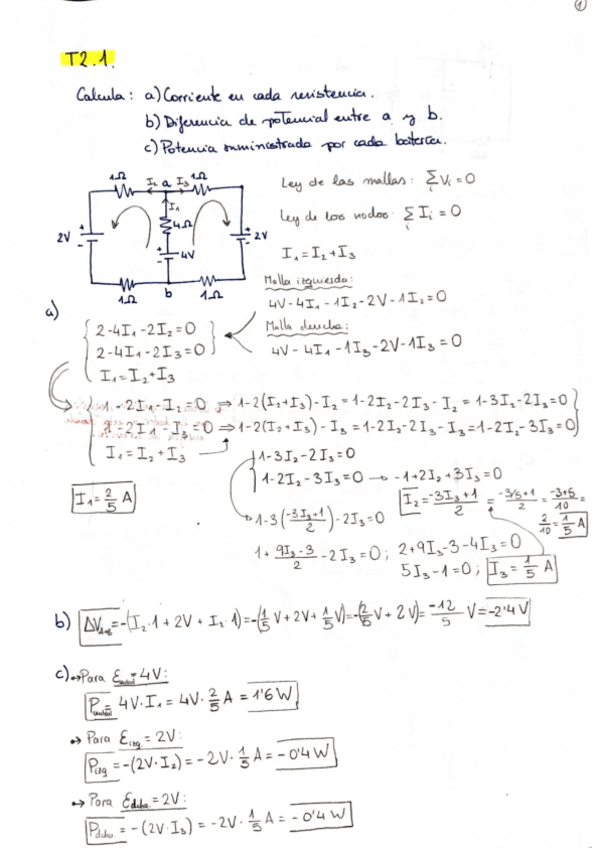 1
T2.1.
Calcula: a) Corriente en cada resistencia.
b) Diferencia de potencial entre a y b.
c) Potencia suministrada por cada batería.
1Ω I₂ a I₃ 1Ω
I₁
4Ω
2V
4V
2V
1Ω b 1Ω
Ley de las mallas: ∑Vᵢ = 0
Ley de los nodos: ∑Iᵢ = 0
I₁ = I₂ + I₃
Malla izquierda:
4V - 4I₁ - 1I₂ - 2V - 1I₂ = 0
Malla derecha:
4V - 4I₁ - 1I₃ - 2V - 1I₃ = 0
a)
2 - 4I₁ - 2I₂ = 0
2 - 4I₁ - 2I₃ = 0
I₁ = I₂ + I₃
1 - 2I₁ - I₂ = 0 ⇒ 1 - 2(I₂+I₃) - I₂ = 1 - 2I₂ - 2I₃ - I₂ = 1 - 3I₂ - 2I₃ = 0
1 - 2I₁ - I₃ = 0 ⇒ 1 - 2(I₂+I₃) - I₃ = 1 - 2I₂ - 2I₃ - I₃ = 1 - 2I₂ - 3I₃ = 0
I₁ = I₂ + I₃
1 - 3I₂ - 2I₃ = 0
1 - 2I₂ - 3I₃ = 0 → -1 + 2I₂ + 3I₃ = 0
I₁ = 2/5 A
I₂ = (-3I₃+1)/2 = (-3/5+1)/2 = (-3+5)/10 =
2/10 = 1/5 A
1 - 3((-3I₃+1)/2) - 2I₃ = 0
1 + (9I₃-3)/2 - 2I₃ = 0; 2 + 9I₃ - 3 - 4I₃ = 0
5I₃ - 1 = 0; I₃ = 1/5 A
b) ΔV = -(I₂·1 + 2V + I₂·1) = -(1/5 V + 2V + 1/5 V) = -(2/5 V + 2V) = -12/5 V = -2'4 V
c) → Para ε = 4V:
P = 4V·I₁ = 4V · 2/5 A = 1'6 W
→ Para εizq = 2V:
Pizq = -(2V·I₂) = -2V · 1/5 A = -0'4 W
→ Para εdcha = 2V:
Pdcha = -(2V·I₃) = -2V · 1/5 A = -0'4 W